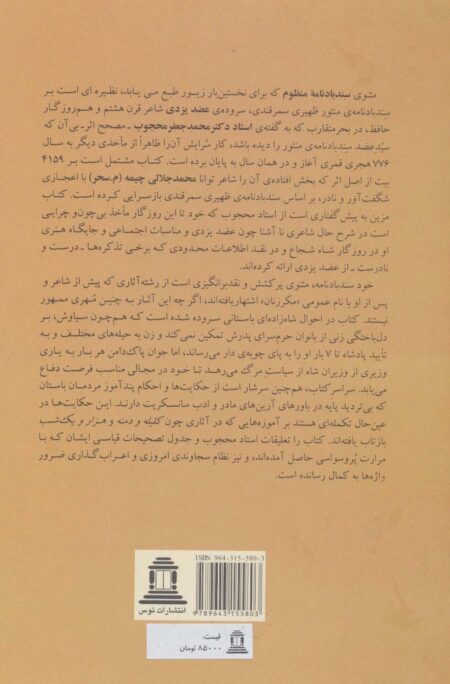 مثنوی سندبادنامهٔ منظوم که برای نخستین‌بار زیور طبع می یابد، نظیره ای است بر
سندبادنامه‌ی منثور ظهیری سمرقندی، سروده‌ی عضد یزدی شاعر قرن هشتم و هم‌روزگار
حافظ، در بحرمتقارب که به گفته‌ی استاد دکترمحمدجعفرمحجوب ـ مصحح اثرـ بی‌آن که
سیّدعضد سندبادنامه‌ی منثور را دیده باشد، کار سُرایش آن‌را ظاهراً از مأخذی دیگر به سال
۷۷۶ هجری قمری آغاز و در همان سال به پایان برده است. کتاب مشتمل است بـر ۴۱۵۹
بیت از اصل اثر که بخش افتاده‌ی آن را شاعر توانا محمدجلالی چیمه (م.سحر) با اعجازی
شگفت‌آور و نادر، بر اساس سندبادنامه‌ی ظهیری سمرقندی بازسرایی کرده است. کتاب
مزین به پیش‌گفتاری است از استاد محجوب که خود تا این روزگار مأخذ بی‌چون‌و چرایی
است در شرح حال شاعری نا آشنا چون عضد یزدی و مناسبات اجتماعی و جایگاه هنری
او در روزگار شاه شجاع و در نقد اطلاعات محدودی که برخی تذکره‌ها ـ درست و
نادرست ـ از عضد یزدی ارائه کرده‌اند.
خود سندبادنامه، مثنوی پرکشش و نقدبرانگیزی است از رشته‌آثاری که پیش از شاعر و
پس از او با نام عمومی «مکرزنان» اشتهاریافته‌اند، اگر چه این آثار به چنیـن مُهری ممهور
نیستند. کتاب در احوال شاه‌زاده‌ای باستانی سروده شده است کـه هم‌چون سیاوش، بر
دل‌باختگی زنی از بانوان حرم‌سرای پدرش تمکین نمی‌کند و زن به حیله‌های مختلف و به
تأیید پادشاه تا ۷ بار او را به پای چوبه‌ی دار می‌رساند، اما جوان پاک‌دامن هر بـار بـه یـاری
وزیری از وزیران شاه از سیاستِ مرگ می‌رهـد تـا خـود در مجالی مناسب فرصت دفاع
می‌یابد. سراسر کتاب، هم‌چنین سرشار است از حکایت‌ها و احکام پندآموز مردمـان باستان
که بی‌تردید پایه در باورهای آرین‌های مادر و ادب سانسکریت دارنـد. این حکایت‌ها در
عین‌حال تکمله‌ای هستند بر آموزه‌هایی که در آثاری چون کلیله و دمنه و هزار و یک‌شب
بازتاب یافته‌اند. کتاب را تعلیقات استاد محجوب و جدول تصحیحات قیاسی ایشان کـه با
مرارت پُروسواسی حاصل آمده‌اند، و نیز نظام سجاوندی امروزی و اعراب‌گذاری ضرور
واژه‌ها به کمال رسانده است.
ISBN 964-315-580-3
9 789643 155803
انتشارات توس
قیمت:
۸۵۰۰۰ تومان